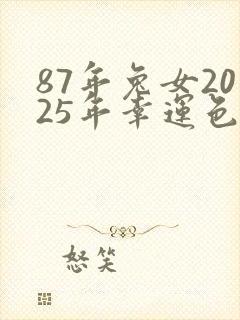 87年兔女20
25年幸运色
怒笑